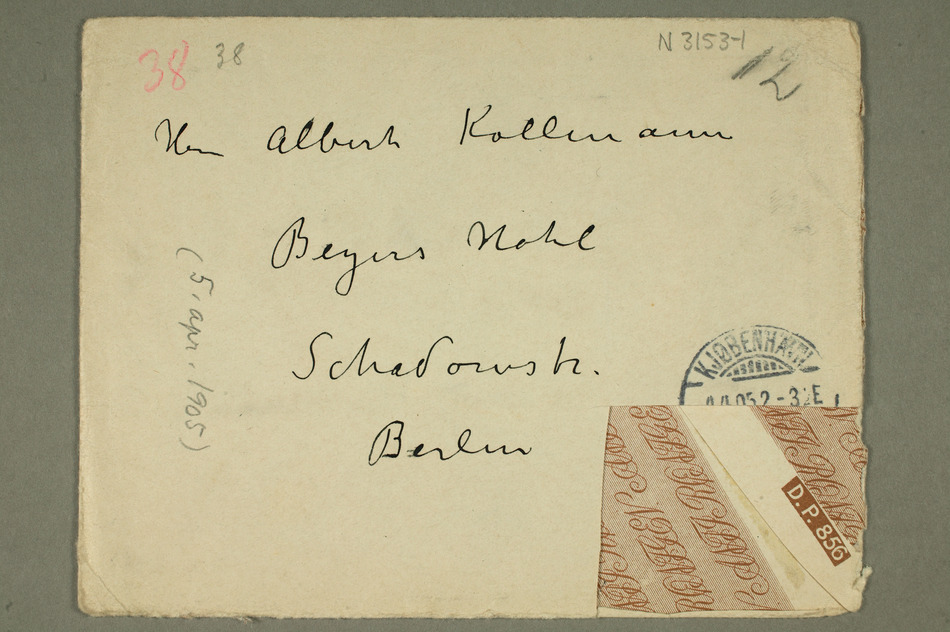 38 38 N 3153-1
12
Herrn Albert Kollmann
Beyers Hotel
Schadowstr.
Berlin
(5. apr. 1905)
KJØBENHAVN
D. P. 856